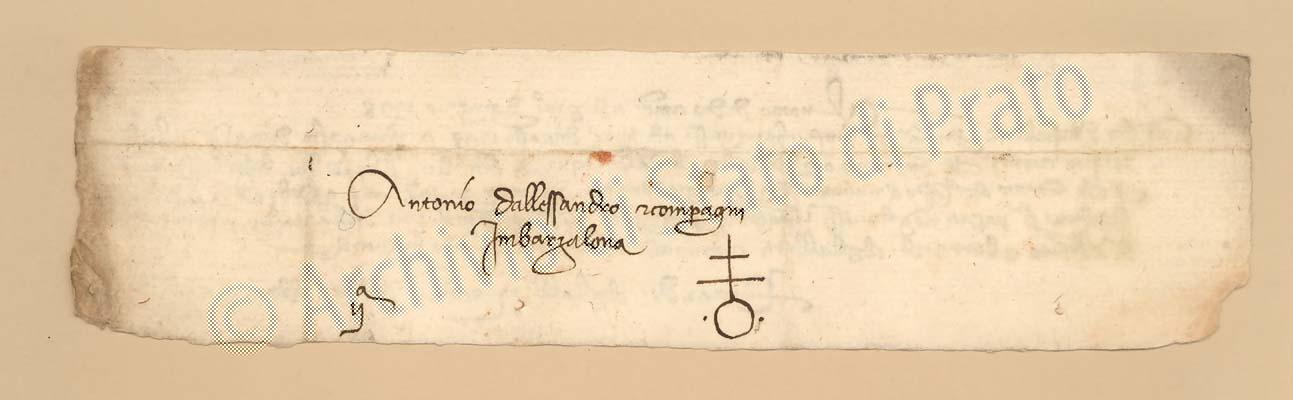 Antonio dallessandro & compagni
Imbarzalona
ij a
© Archivio di Stato di Prato